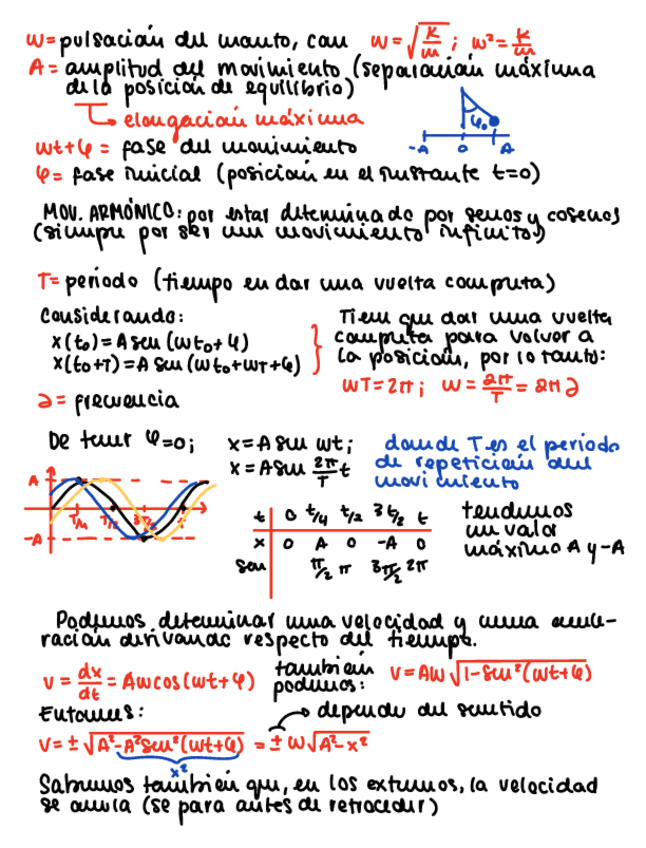 ω = pulsación del muelle, con ω = √(k/m) ; ω² = k/m
A = amplitud del movimiento (separación máxima
de la posición de equilibrio)
↳ elongación máxima
φ₀
-A 0 A
ωt+φ = fase del movimiento
φ = fase inicial (posición en el instante t=0)
MOV. ARMÓNICO: por estar determinado por senos y cosenos
(siempre por ser un movimiento infinito)
T = periodo (tiempo en dar una vuelta completa)
Considerando:
x(t₀) = A sen (ωt₀+φ)
x(t₀+T) = A sen (ωt₀+ωT+φ)
Tiene que dar una vuelta
completa para volver a
la posición, por lo tanto:
ωT = 2π ; ω = 2π/T = 2π∂
∂ = frecuencia
De tener φ=0; x = A sen ωt;
x = A sen 2π/T t
donde T es el periodo
de repetición del
movimiento
A
-A
T/4 T/2
t 0 t/4 t/2 3t/2 t
x 0 A 0 -A 0
sen π/2 π 3π/2 2π
tendremos
un valor
máximo A y -A
Podemos determinar una velocidad y una acele-
ración derivando respecto del tiempo.
v = dx/dt = Aωcos(ωt+φ) también podemos: v = Aω √(1-sen²(ωt+φ))
Entonces: → depende del sentido
v = ± √(A²-A²sen²(ωt+φ)) = ± ω√(A²-x²)
x²
Sabemos también que, en los extremos, la velocidad
se anula (se para antes de retroceder)